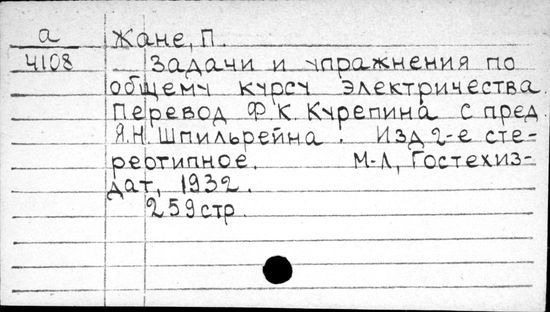 а Жане, П.
4108 Задачи и упражнения по
общему курсу электричества.
Перевод Ф.К. Курепина с пред.
Я.Н. Шпильрейна. Изд 2-е сте-
реотипное. М-Л, Гостехиз-
дат, 1932.
259 стр.